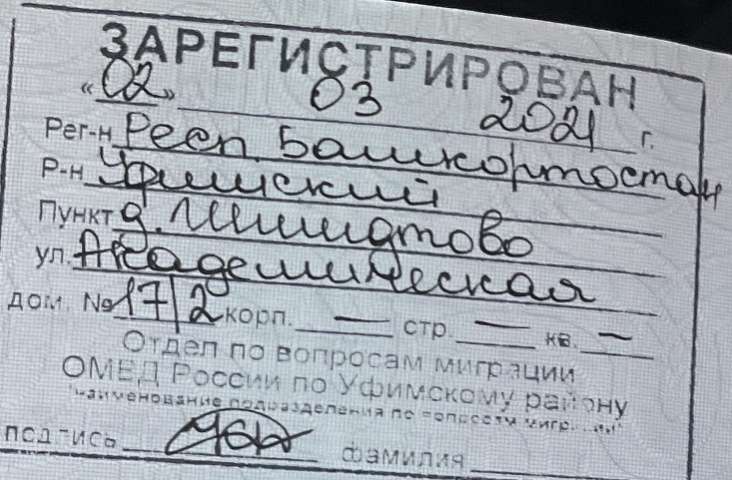 ЗАРЕГИСТРИРОВАН
«02» 03 2021 г.
Рег-н Респ. Башкортостан
Р-н Уфимский
Пункт д. Шмидтово
ул. Академическая
дом. № 17/2 корп. — стр. — кв. —
Отдел по вопросам миграции
ОМВД России по Уфимскому району
наименование подразделения по вопросам мигр
подпись фамилия